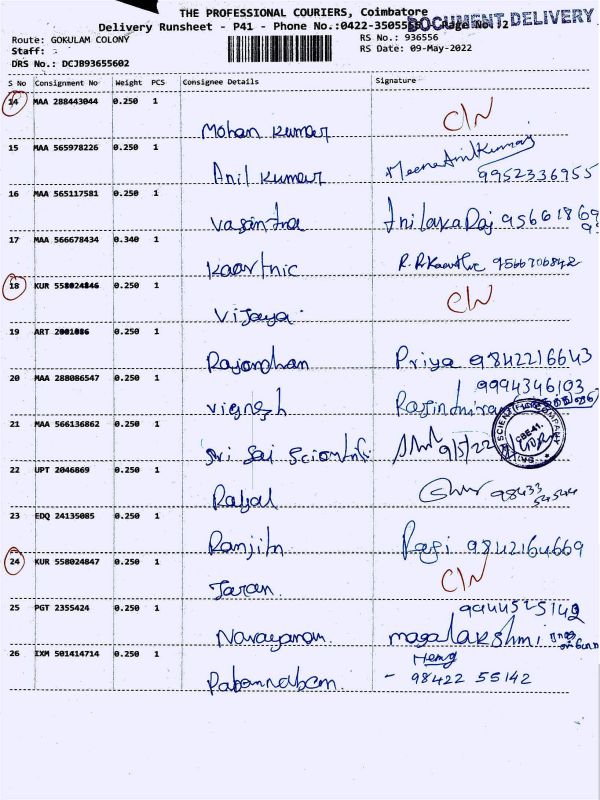 THE PROFESSIONAL COURIERS, Coimbatore
DOCUMENT DELIVERY
Delivery Runsheet - P41 - Phone No.:0422-350555 Page No.:2
Route: GOKULAM COLONY RS No.: 936556
Staff: RS Date: 09-May-2022
DRS No.: DCJB93655602
S No Consignment No Weight PCS Consignee Details Signature
14 MAA 288443044 0.250 1
Mohan Kumar C/N
15 MAA 565978226 0.250 1
Anil Kumar Meena Anil Kumar
9952336955
16 MAA 565117581 0.250 1
Vasantha 95661869
17 MAA 566678434 0.340 1
Kaarthic 9566706842
18 KUR 558024846 0.250 1
Vijaya C/N
19 ART 2001086 0.250 1
Rajamohan Priya 9842216643
20 MAA 288086547 0.250 1
9994346103
Vignesh
21 MAA 566136862 0.250 1
Sri Sai Scientific 9/5/22
CBE-41.
22 UPT 2046869 0.250 1
98433
54544
23 EDQ 24135085 0.250 1
Ranjith Ragi 9842164669
24 KUR 558024847 0.250 1
Taran C/N
25 PGT 2355424 0.250 1
9944525142
Narayanan magalakshmi
26 IXM 501414714 0.250 1
Hema
- 98422 55142